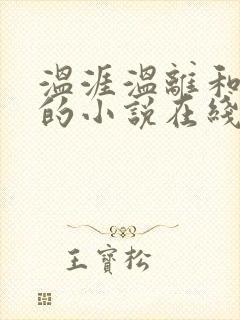 温涯温離和
的小説在綫
王寳松